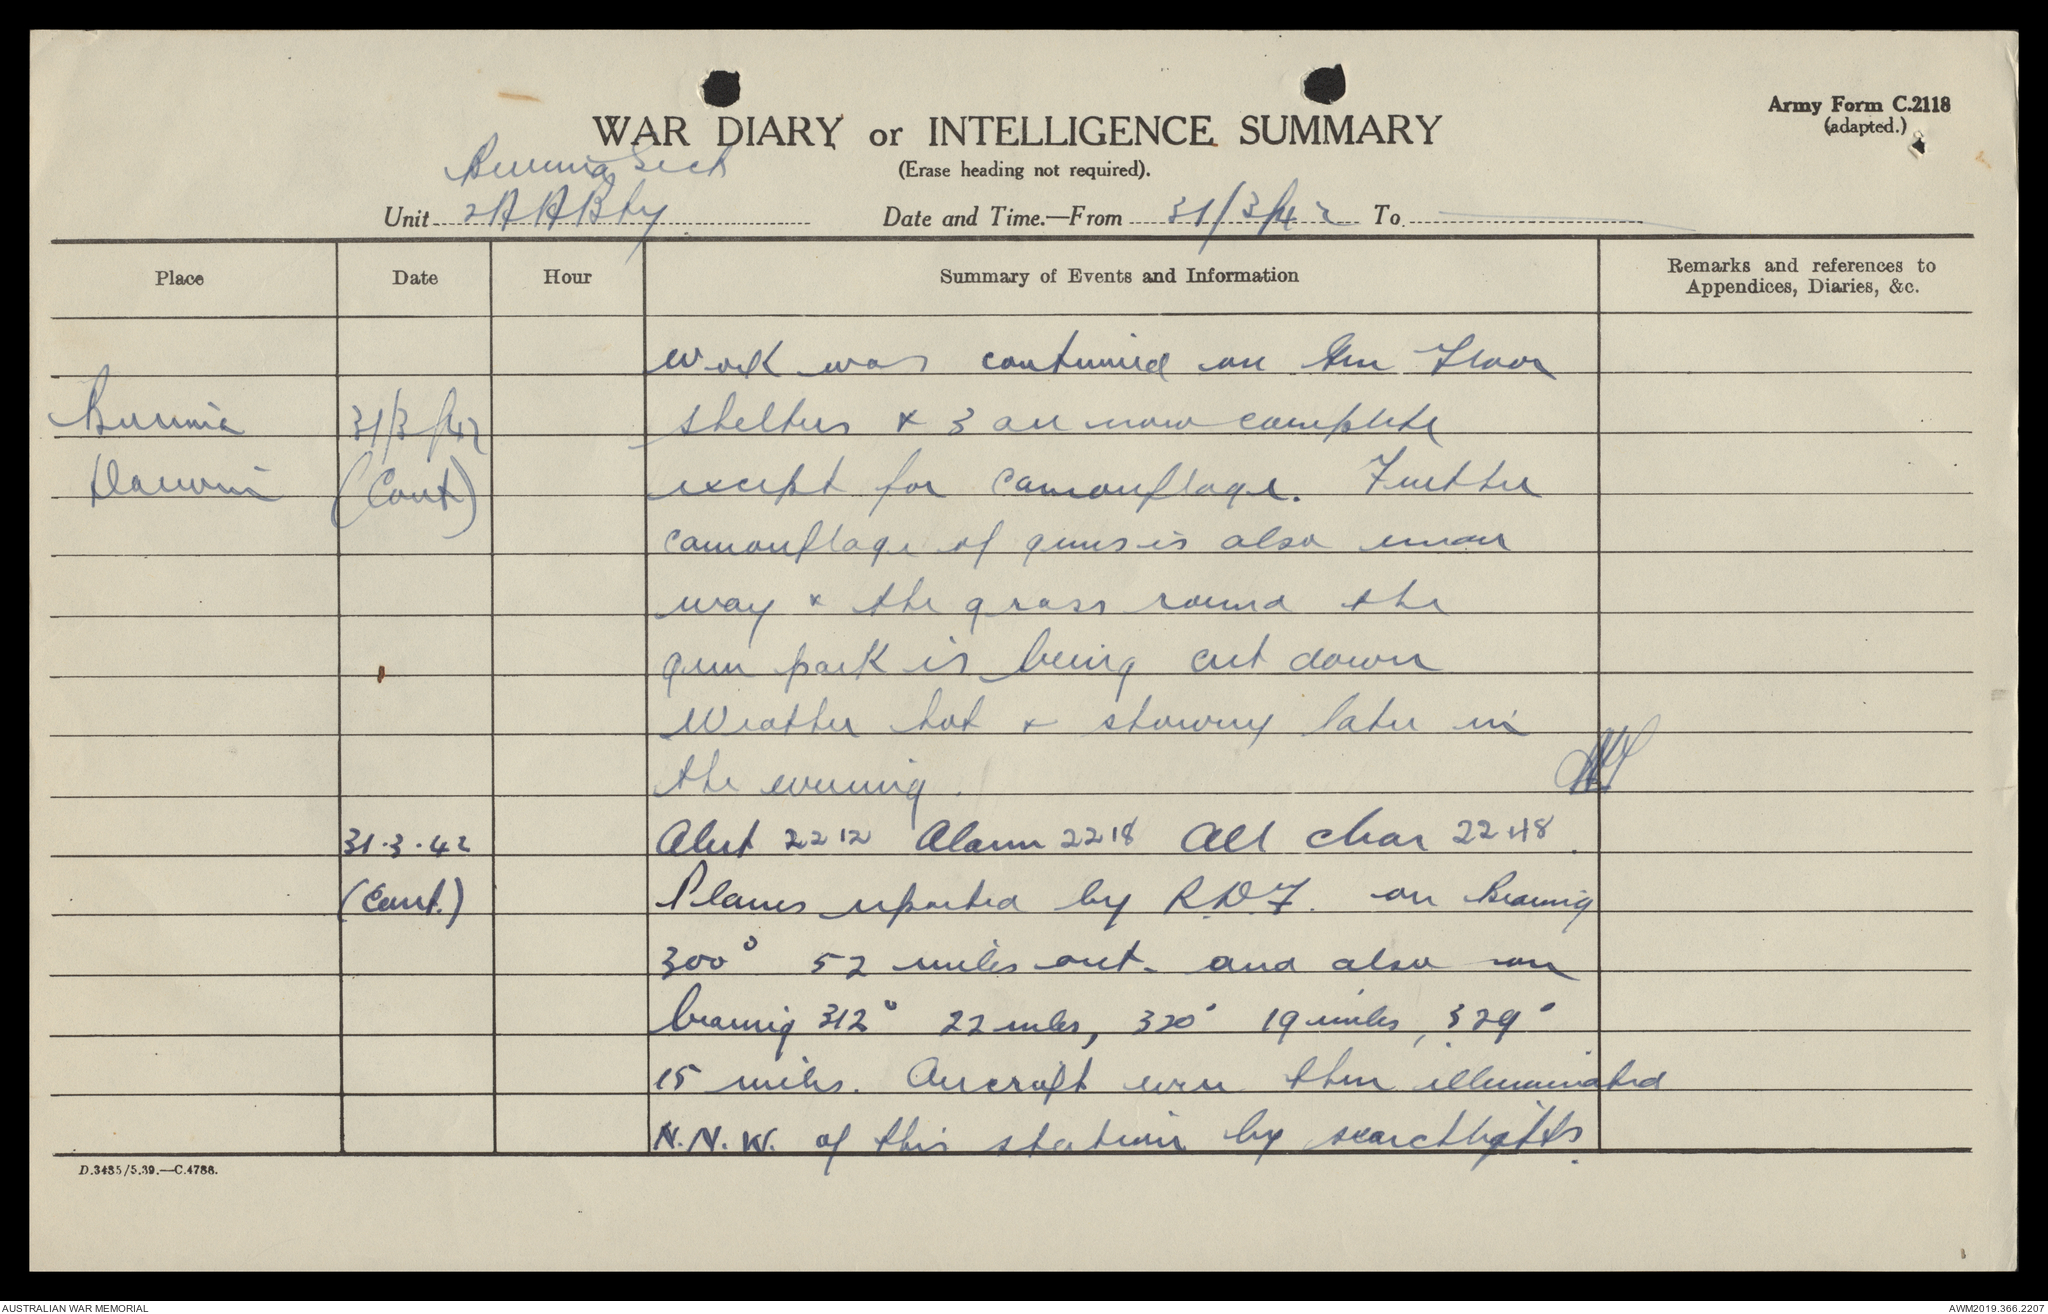 Army Form C.2118
(adapted.)
WAR DIARY or INTELLIGENCE SUMMARY
(Erase heading not required).
Berrima Sect
Unit 2 A A Bty Date and Time.—From 31/3/42 To.
Place Date Hour Summary of Events and Information Remarks and references to
Appendices, Diaries, &c.
Work was continued on Gun Floor
Berrima 31/3/42 shelters & 3 are now complete
Darwin (Cont) except for camouflage. Further
camouflage of guns is also under
way & the grass round the
gun park is being cut down
Weather hot & showery later in
the evening.
31.3.42 Alert 2212 Alarm 2218 All clear 2248.
(Cont.) Planes reported by R.D.F. on Bearing
300° 52 miles out. and also on
bearing 312° 22 miles, 320° 19 miles, 329°
15 miles. Aircraft were then illuminated
N.N.W. of this station by searchlights.
D.3485/5.39.—C.4788.
AUSTRALIAN WAR MEMORIAL AWM2019.366.2207